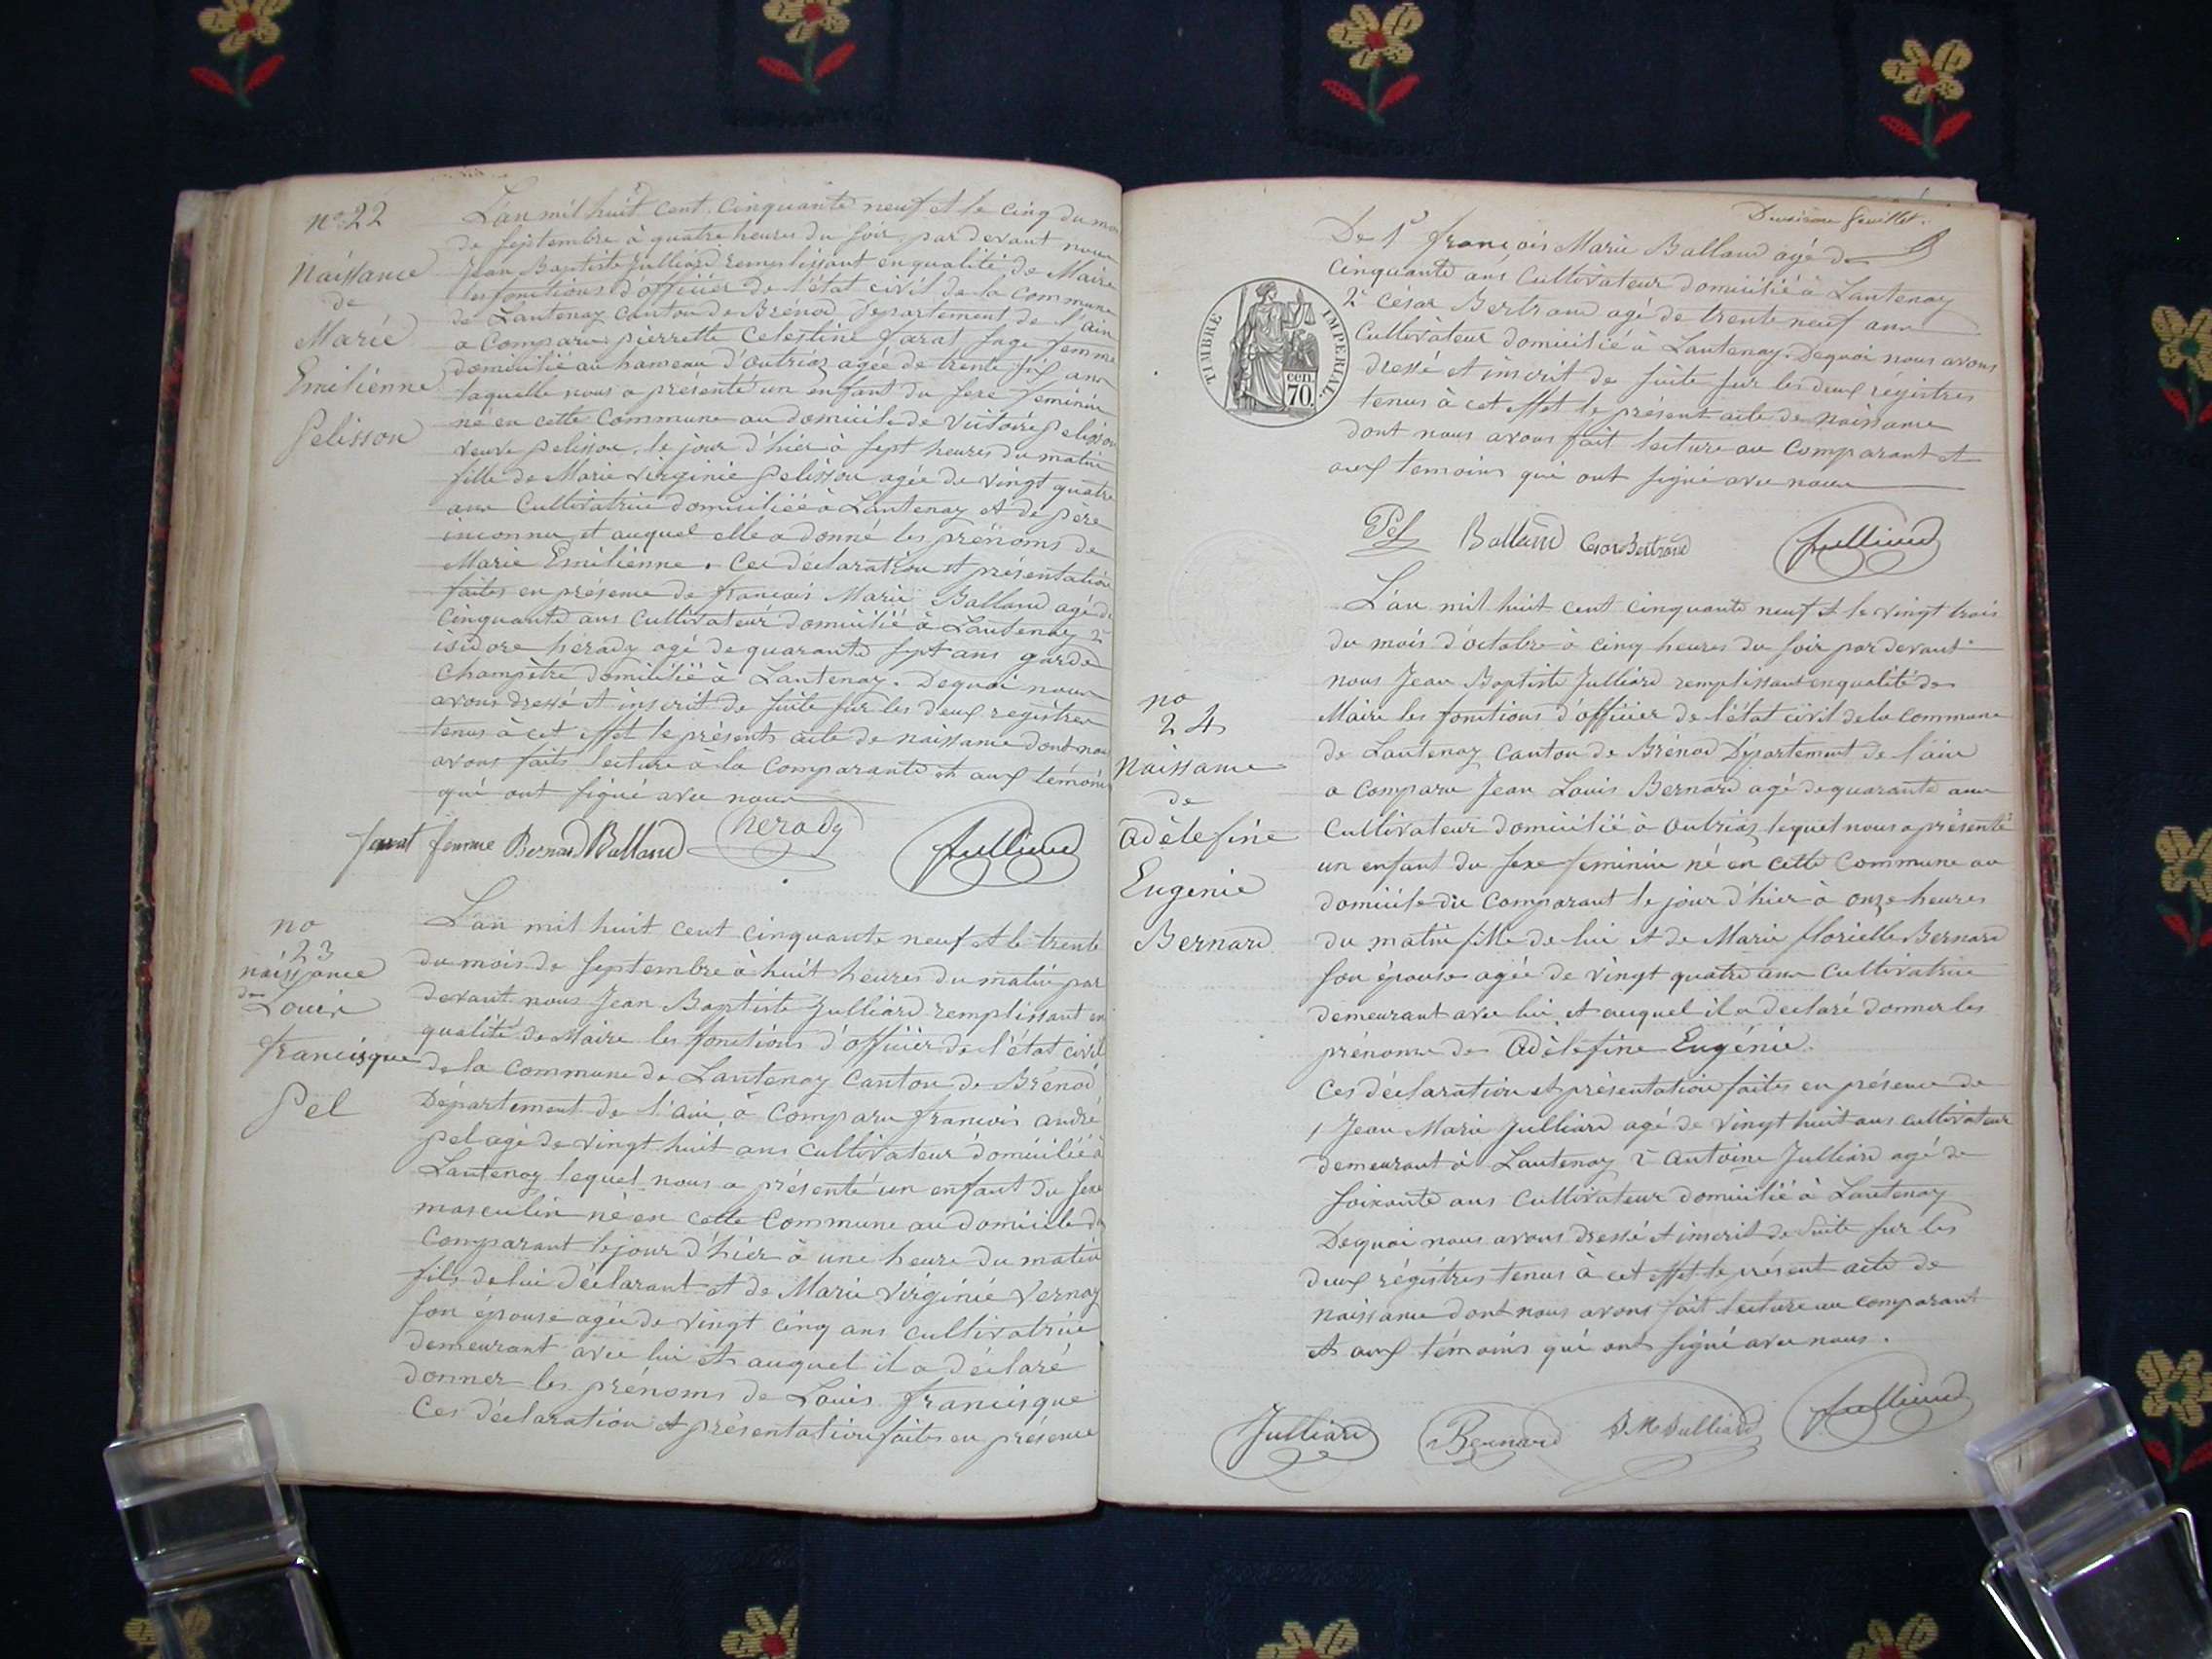 nº 22
Naissance
de
Marie
Emilienne
Pelisson
L'an mil huit cent cinquante neuf et le cinq du mois
de septembre à quatre heures du soir par devant nous
Jean Baptiste Julliard remplissant en qualité de Maire
les fonctions d'officier de l'état civil de la commune
de Lantenay canton de Brénod Département de l'ain
a comparu pierrette Celestine farat sage femme
domicilié au hameau d'outriaz agée de trente six ans
laquelle nous a présenté un enfant du sexe feminin
né en cette commune au domicile de Victoire pelisson
veuve pelisson, le jour d'hier à sept heures du matin
fille de Marie virginie pelisson agée de vingt quatre
ans Cultivatrice domiciliée à Lantenay et de père
inconnu et auquel elle a donné les prénoms de
Marie Emilienne. Ces déclaration et présentation
faites en présence de francois Marie Balland agé de
cinquante ans cultivateur domicilié à Lantenay 2º
isidore hérady agé de quarante sept ans garde
champêtre domicilié à Lantenay. De quoi nous
avons dressé et inscrit de suite sur les deux registres
tenus à cet effet le présent acte de naissance dont nous
avons faits lecture à la comparante et aux témoins
qui ont signé avec nous
farat femme Bernard Balland herady Julliard
no
23
naissance
de
Louis
francisque
Pel
L'an mil huit cent cinquante neuf et le trente
du mois de septembre à huit heures du matin par
devant nous Jean Baptiste Julliard remplissant en
qualité de Maire les fonctions d'officier de l'état civil
de la commune de Lantenay Canton de Brénod
Département de l'ain, à comparu francois andré
pel agé de vingt huit ans cultivateur domicilié à
Lantenay lequel nous a présenté un enfant du sexe
masculin né en cette commune au domicile du
comparant le jour d'hier à une heure du matin
fils de lui déclarant et de Marie virginie vernay
son épouse agée de vingt cinq ans cultivatrice
demeurant avec lui et auquel il a déclaré
donner les prénoms de Louis francisque
Ces déclaration et présentation faites en présence
feuillet.
De 1º françois Marie Balland agé de
cinquante ans cultivateur domicilié à Lantenay
2º César Bertrand agé de trente neuf ans
cultivateur domicilié à Lantenay. De quoi nous avons
dressé et inscrit de suite sur les deux régistres
tenus à cet effet le présent acte de naissance
dont nous avons fait lecture au comparant et
aux temoins qui ont signé avec nous
TIMBRE IMPERIAL.
70. cen.
Pel Balland Cesar Bertrand Julliard
no
24
Naissance
de
Adèlefine
Eugenie
Bernard
L'an mil huit cent cinquante neuf et le vingt trois
du mois d'octobre à cinq heures du soir par devant
nous Jean Baptiste Julliard remplissant en qualité de
Maire les fonctions d'officier de l'état civil de la commune
de Lantenay canton de Brénod Département de l'ain
a comparu Jean Louis Bernard agé de quarante ans
cultivateur domicilié à Outriaz lequel nous a présenté
un enfant du sexe feminin né en cette commune au
domicile du comparant le jour d'hier à onze heures
du matin fille de lui et de Marie florielle Bernard
son épouse agée de vingt quatre ans cultivatrice
demeurant avec lui et auquel il a déclaré donner les
prénoms de Adèlefine Eugénie.
Ces déclaration et présentation faites en présence de
1 Jean Marie Julliard agé de vingt huit ans cultivateur
demeurant à Lantenay 2º antoine Julliard agé de
soixante ans cultivateur domicilié à Lantenay
De quoi nous avons dressé et inscrit de suite sur les
deux régistres tenus à cet effet le présent acte de
naissance dont nous avons fait lecture au comparant
et aux témoins qui ont signé avec nous.
Julliard Bernard J M Julliard Julliard